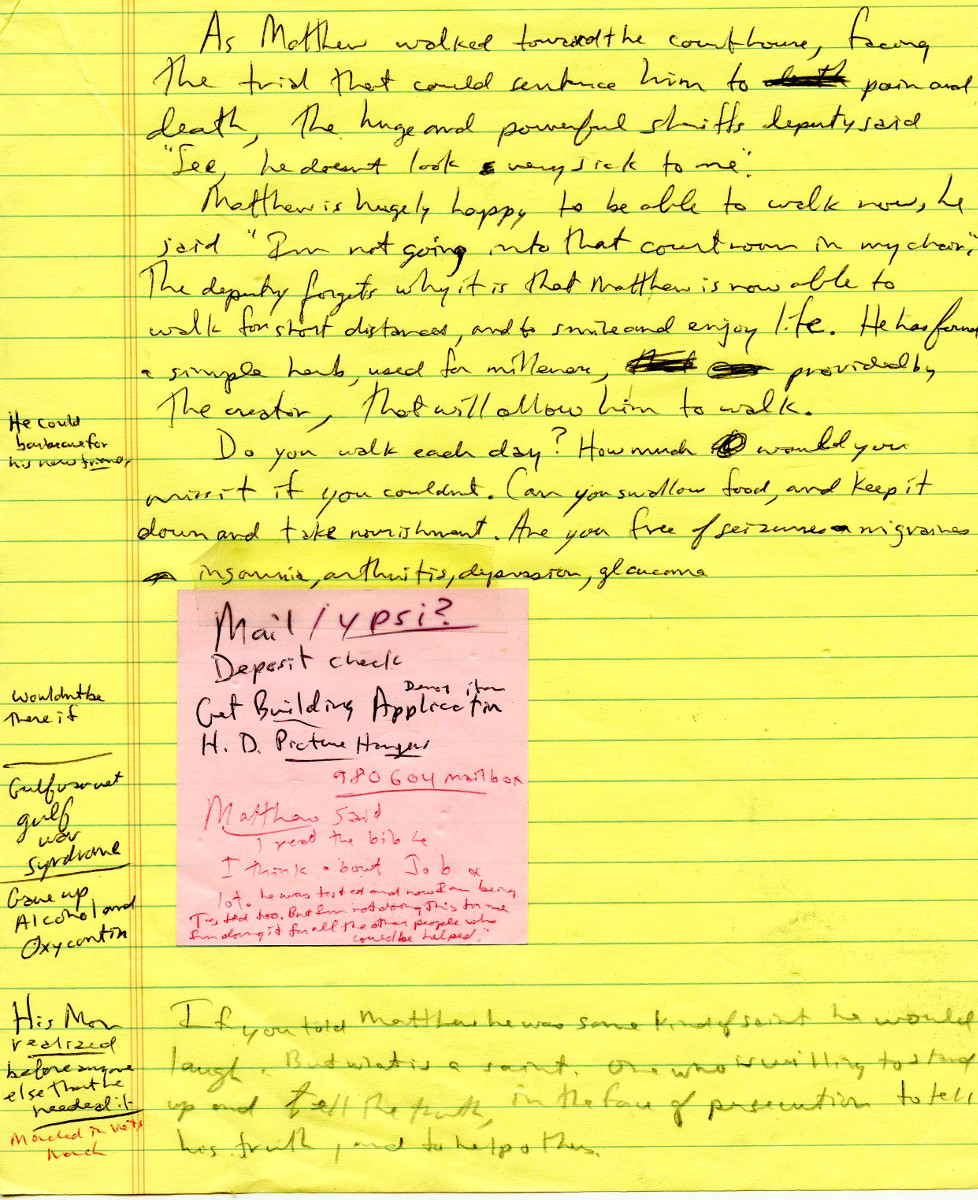 As Matthew walked toward the courthouse, facing
the trial that could sentence him to pain and
death, the huge and powerful sheriffs deputy said
"See, he doesnt look very sick to me".
Matthew is hugely happy to be able to walk now, he
said "Im not going into that court room in my chair."
The deputy forgets why it is that Matthew is now able to
walk for short distances, and to smile and enjoy life. He has found
a simple herb, used for millenea, provided by
the creator, that will allow him to walk.
Do you walk each day? How much would you
miss it if you couldnt. Can you swallow food, and keep it
down and take nourishment. Are you free of seizures migraines
insomnia, arthritis, depression, glaucoma
He could
barbecue for
his new friends
wouldnt be
there if
Gulf war vet
gulf
war
syndrome
Gave up
Alcohol and
Oxycontin
His Mom
realized
before anyone
else that he
needed it
Marched in vets
march
Mail / ypsi?
Deposit check
Get Building Application
H. D. Picture Hangers
980604 mailbox
Matthew said
I read the bible
I think about Job a
lot. he was tested and now I am being
Tested too. But Im not doing this for me
Im doing it for all the other people who
could be helped."
If you told Matthew he was some kind of saint he would
laugh. But what is a saint. One who is willing to stand
up and tell the truth, in the face of persecution to tell
his truth, and to help others.